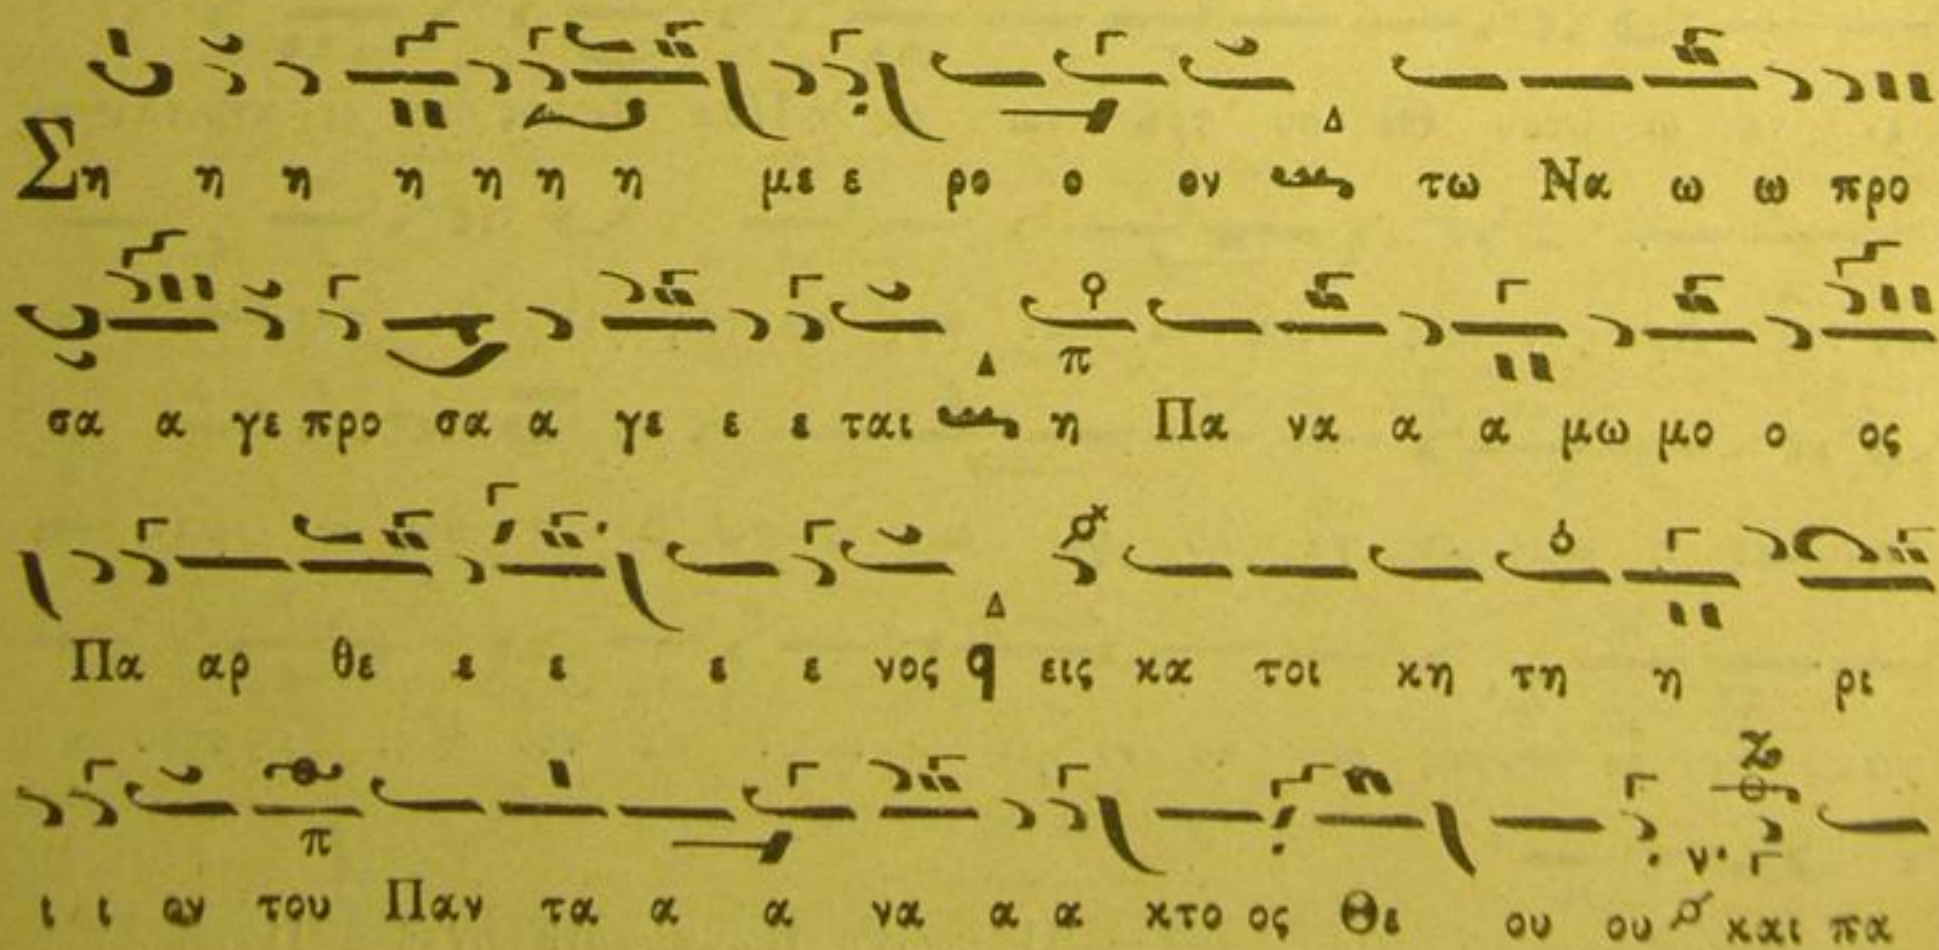 Ση η η η η η η με ε ρο ο ον τω Να ω ω προ
σα α γε προ σα α γε ε ε ται η Πα να α α μω μο ο ος
Πα αρ θε ε ε ε ε νος εις κα τοι κη τη η ρι
ι ι ον του Παν τα α α να α α κτο ος Θε ου ου και πα